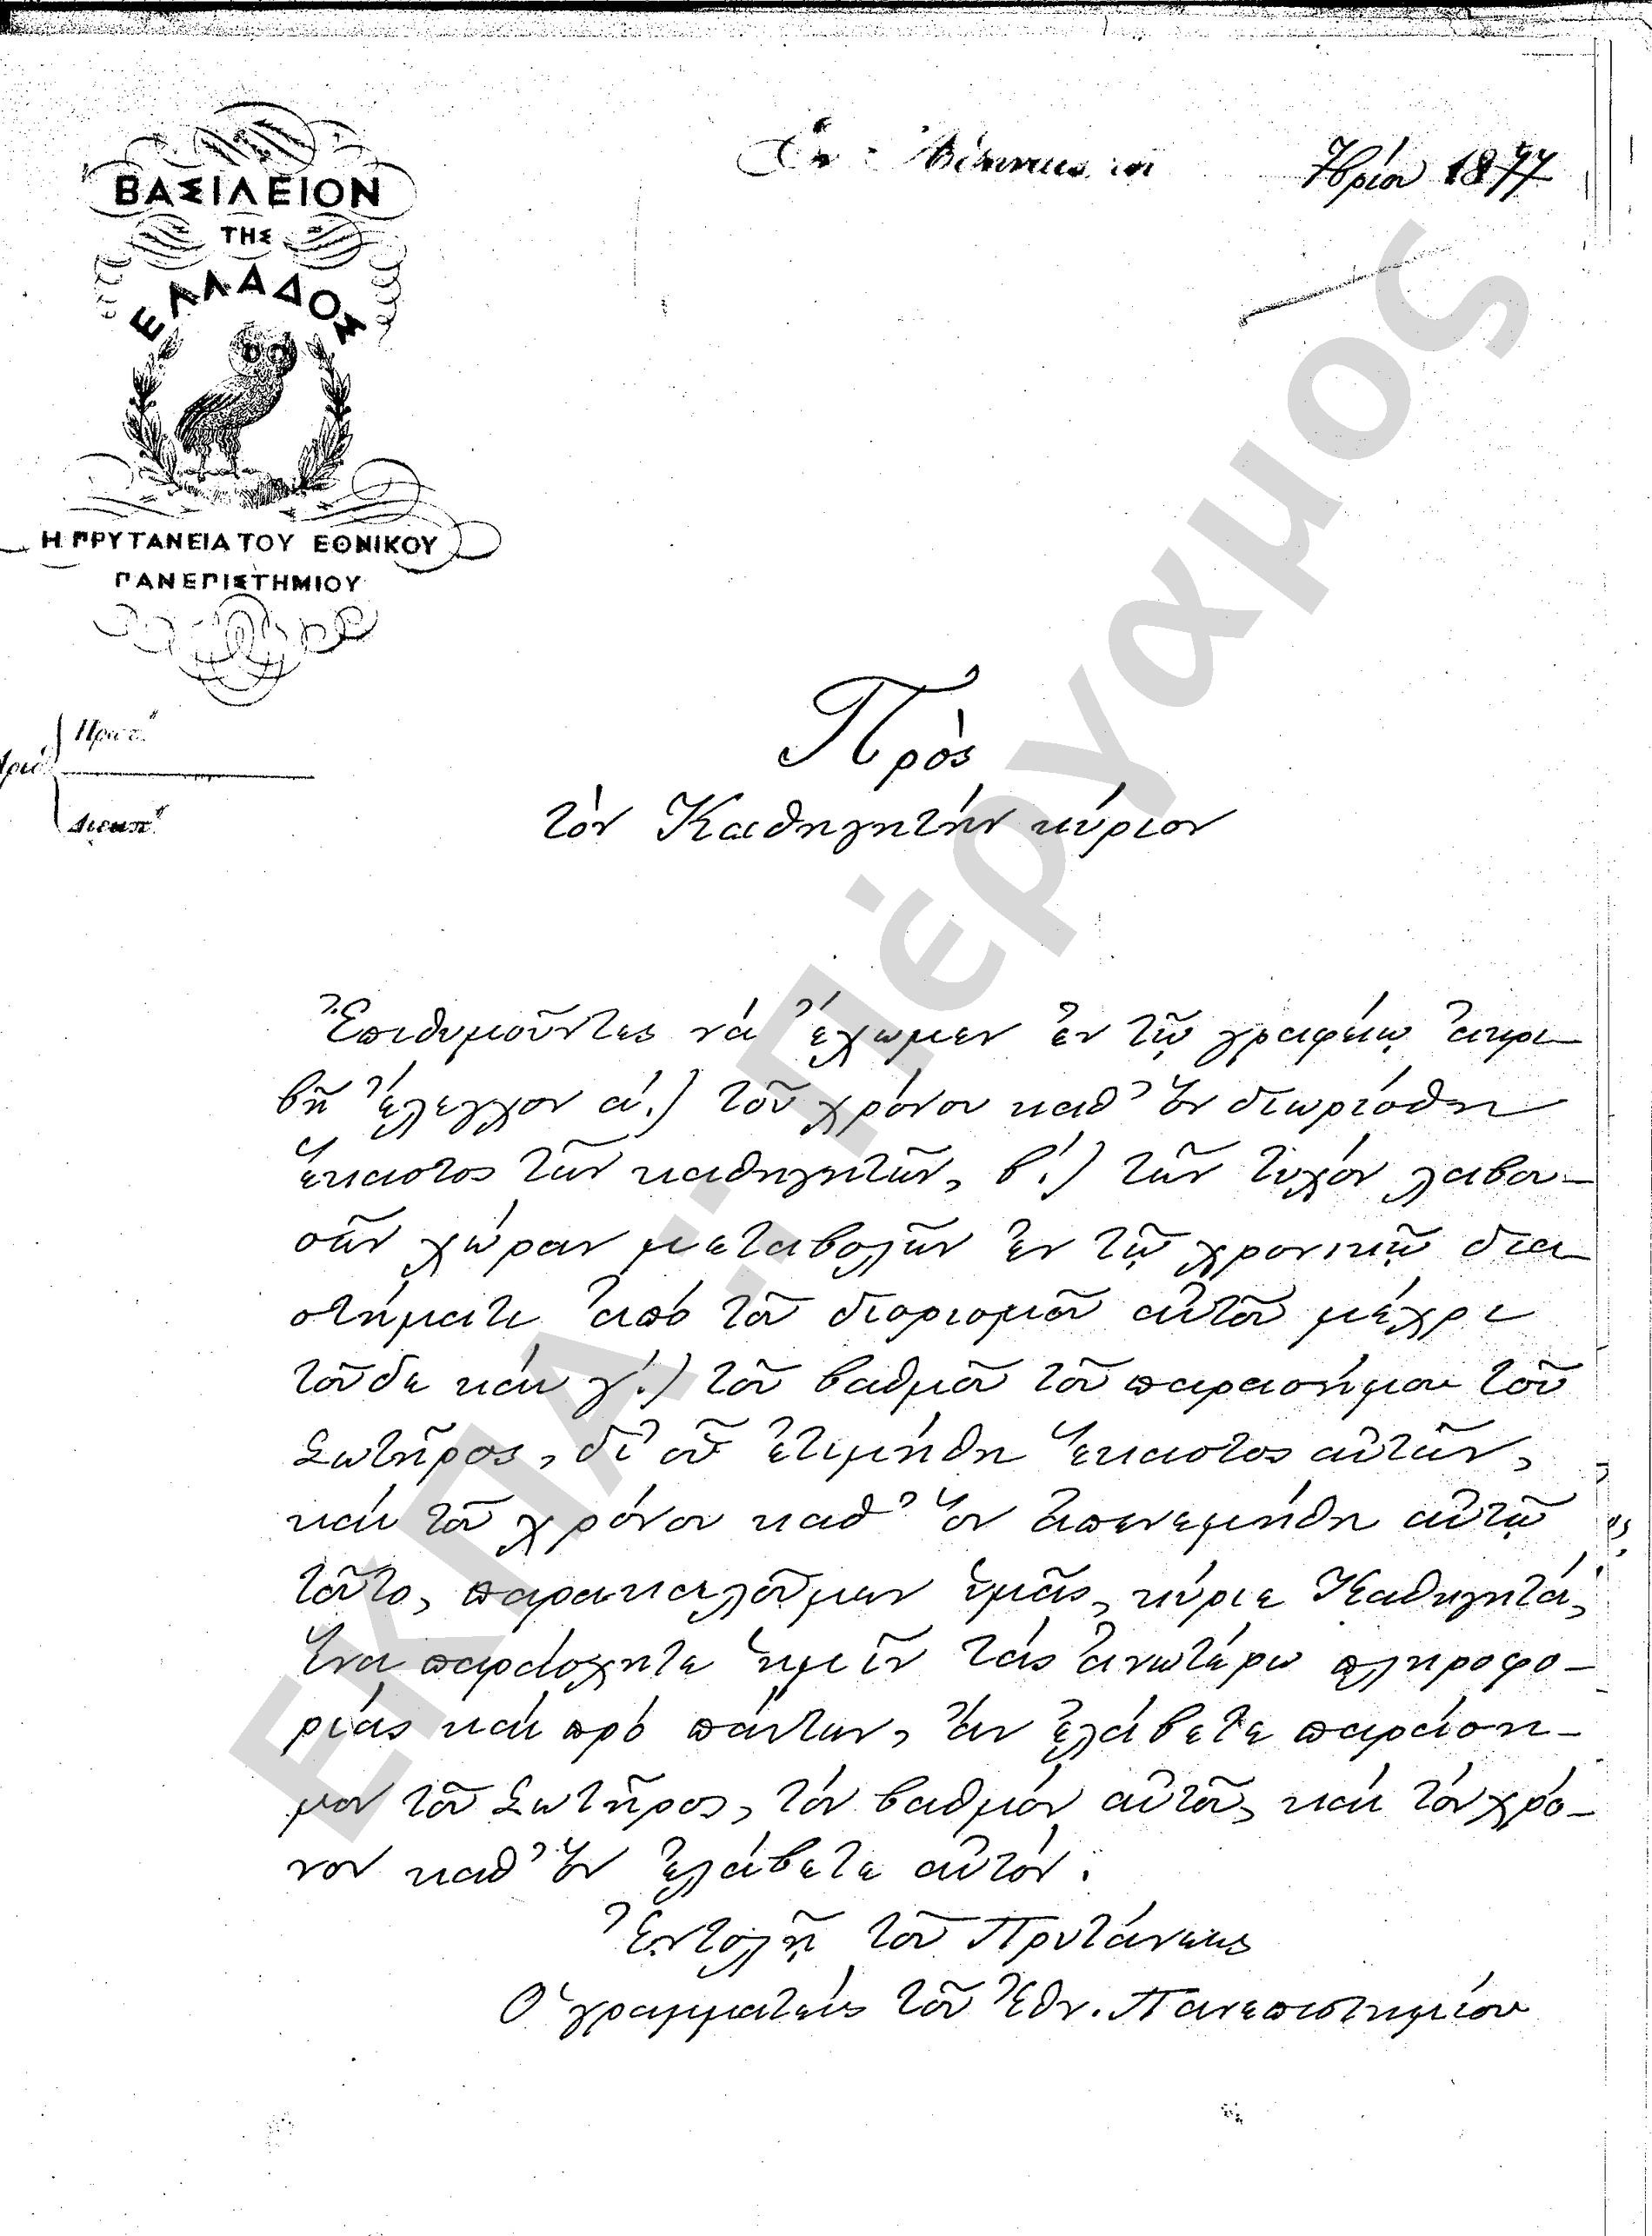 ΒΑΣΙΛΕΙΟΝ
ΤΗΣ
ΕΛΛΑΔΟΣ
Η ΠΡΥΤΑΝΕΙΑ ΤΟΥ ΕΘΝΙΚΟΥ
ΠΑΝΕΠΙΣΤΗΜΙΟΥ
Ἐν Ἀθήναις τῇ 7βρίου 1877
Πρωτ.
Διεκπ.
Πρὸς
τὸν Καθηγητὴν κύριον
Ἐπιθυμοῦντες νὰ ἔχωμεν ἐν τῷ γραφείῳ ἀκρι-
βῆ ἔλεγχον α΄.) τοῦ χρόνου καθ' ὃν διωρίσθη
ἕκαστος τῶν καθηγητῶν, β΄.) τῶν τυχὸν λαβου-
σῶν χώραν μεταβολῶν ἐν τῷ χρονικῷ δια-
στήματι ἀπὸ τοῦ διορισμοῦ αὐτοῦ μέχρι
τοῦδε καὶ γ΄.) τοῦ βαθμοῦ τοῦ παρασήμου τοῦ
Σωτῆρος, δι' οὗ ἐτιμήθη ἕκαστος αὐτῶν,
καὶ τοῦ χρόνου καθ' ὃν ἀπενεμήθη αὐτῷ
τοῦτο, παρακαλοῦμεν ὑμᾶς, κύριε Καθηγητά,
ἵνα παράσχητε ἡμῖν τὰς ἀνωτέρω πληροφο-
ρίας καὶ πρὸ πάντων, ἂν ἐλάβετε παράση-
μον τοῦ Σωτῆρος, τὸν βαθμὸν αὐτοῦ, καὶ τὸν χρό-
νον καθ' ὃν ἐλάβετε αὐτόν.
Ἐντολῇ τοῦ Πρυτάνεως
Ὁ γραμματεὺς τοῦ Ἐθν. Πανεπιστημίου
ΕΚΠΑ-Πέργαμος